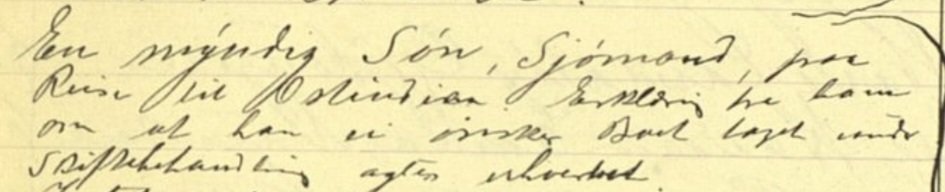 En myndig Søn, Sjømand, paa
Reise til Ostindien. Erklæring fra ham
om at han ei ønsker Boet taget under
Skiftebehandling agtes erhvervet